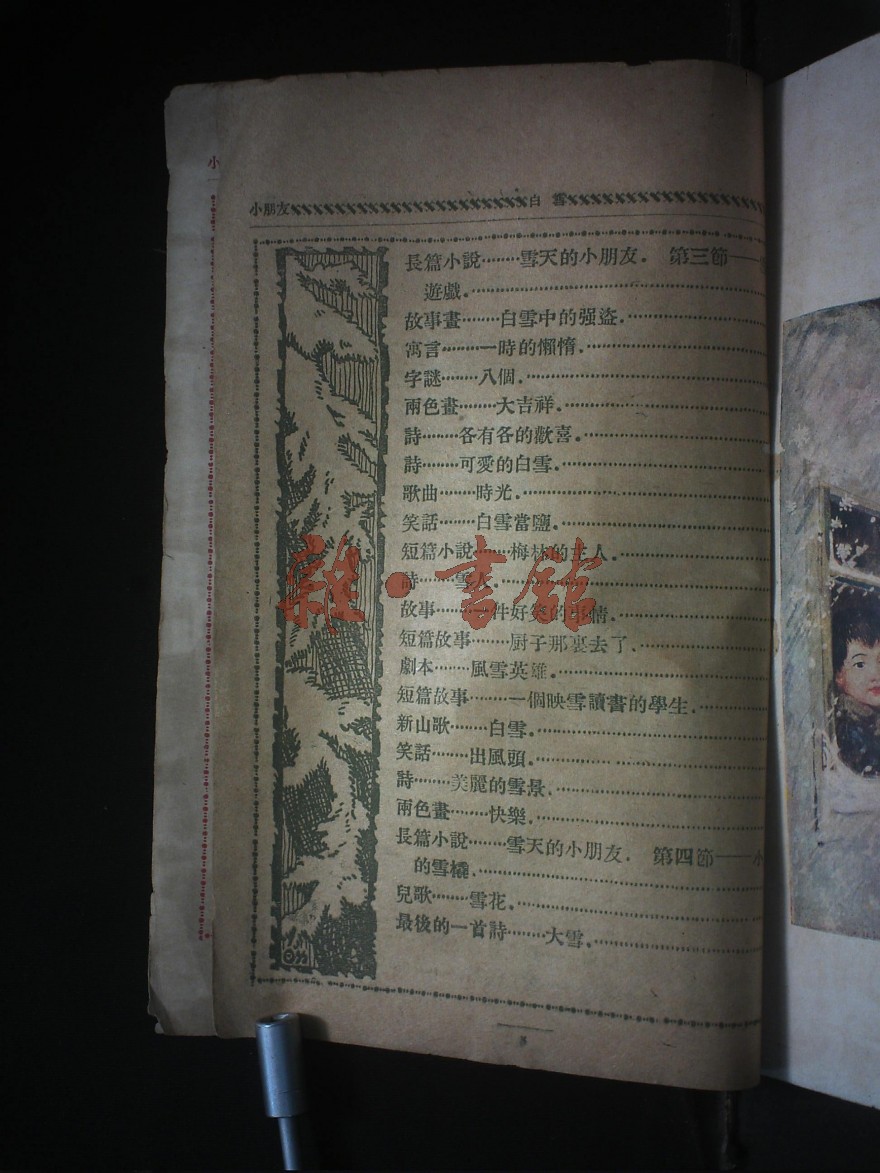 小
小朋友 白雪
長篇小說········雪天的小朋友. 第三節——
遊戲.
故事畫········白雪中的强盜.
寓言········一時的懶惰.
字謎········八個.
兩色畫········大吉祥.
詩········各有各的歡喜.
詩········可愛的白雪.
歌曲········時光.
笑話········白雪當鹽.
短篇小說········梅林的主人.
詩········雪人.
故事········一件好笑的事情.
短篇故事········厨子那裏去了.
劇本········風雪英雄.
短篇故事········一個映雪讀書的學生.
新山歌········白雪.
笑話········出風頭.
詩········美麗的雪景.
兩色畫········快樂.
長篇小說········雪天的小朋友. 第四節——小
的雪橇.
兒歌········雪花.
最後的一首詩········大雪.
雜·書館